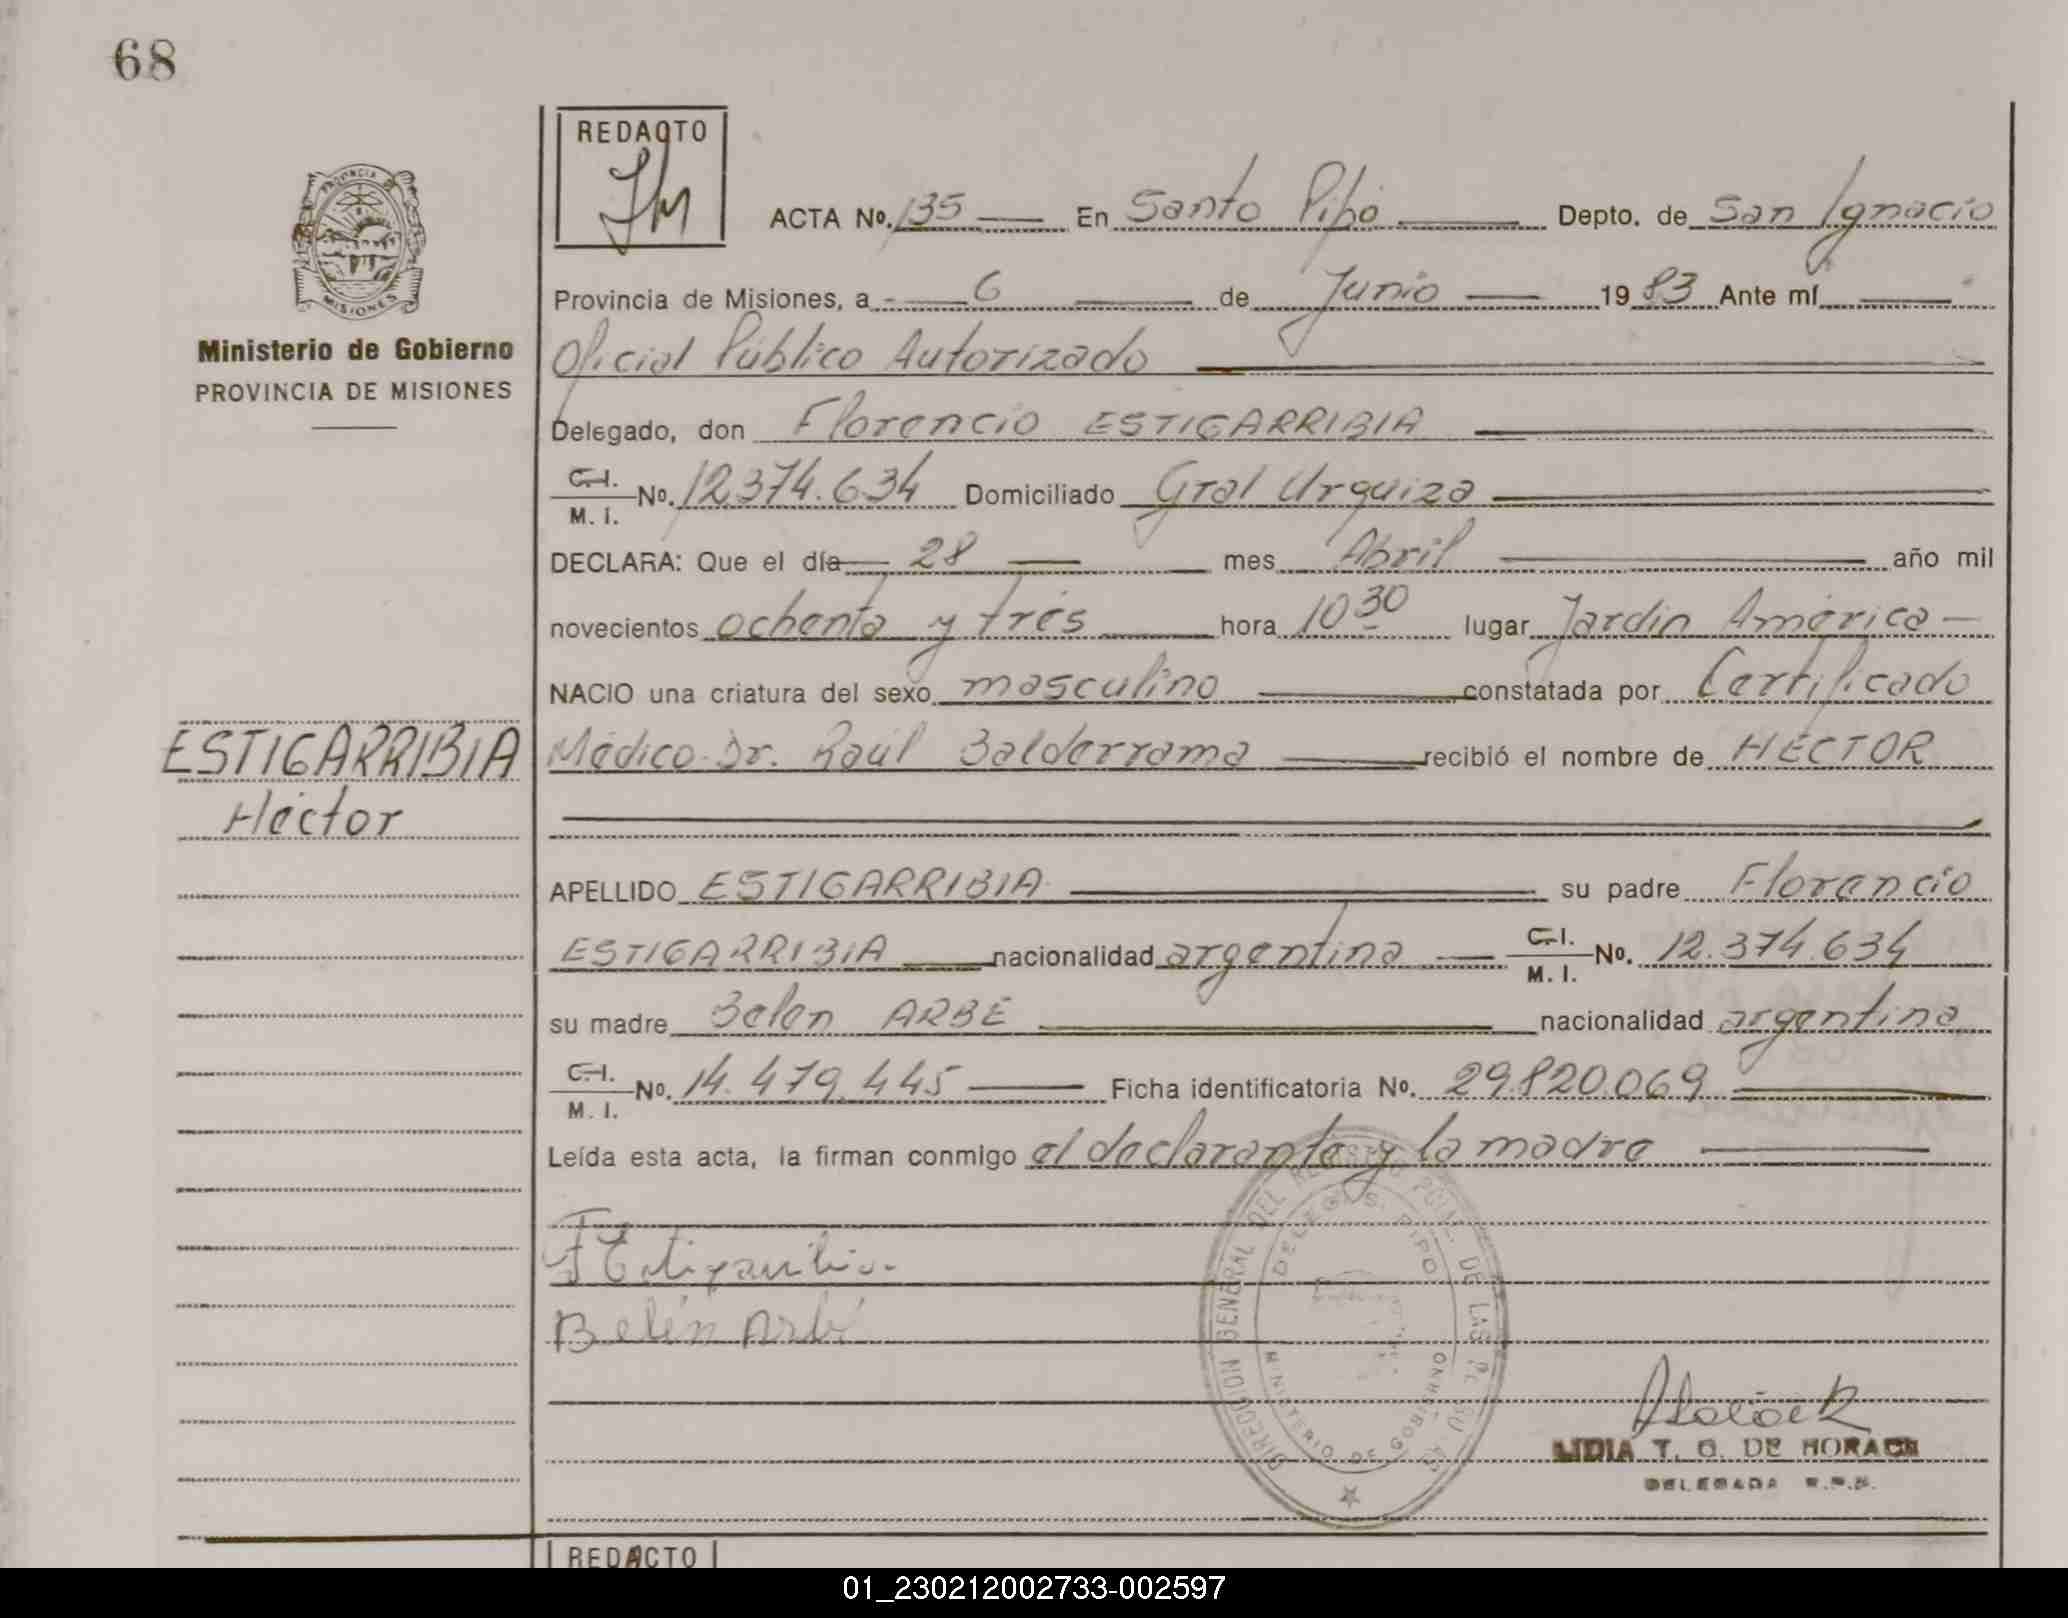 68
REDACTO
ACTA No. 135 En Santo Pipó Depto. de San Ignacio
PROVINCIA DE
MISIONES
Provincia de Misiones, a 6 de Junio 19 83 Ante mí
Ministerio de Gobierno
PROVINCIA DE MISIONES
Oficial Público Autorizado
Delegado, don Florencio ESTIGARRIBIA
C.I.
M. I. No. 12.374.634 Domiciliado Gral Urquiza
DECLARA: Que el día 28 mes Abril año mil
novecientos ochenta y tres hora 10 30 lugar Jardín América
NACIO una criatura del sexo masculino constatada por Certificado
ESTIGARRIBIA
Héctor
Médico Dr. Raúl Balderrama recibió el nombre de HÉCTOR
APELLIDO ESTIGARRIBIA su padre Florencio
ESTIGARRIBIA nacionalidad argentina C.I. M. I. No. 12.374.634
su madre Belen ARBE nacionalidad argentina
C.I. M. I. No. 14.479.445 Ficha identificatoria No. 29.820.069
Leída esta acta, la firman conmigo el declarante y la madre
F Estigarribia
Belén Arbé
DIRECCION GENERAL DEL REGISTRO PCIAL DE LAS
DELEG. S. PIPO
MINISTERIO DE GOBIERNO
LIDIA T. G. DE HORACK
DELEGADA R.P.P.
REDACTO
01_230212002733-002597